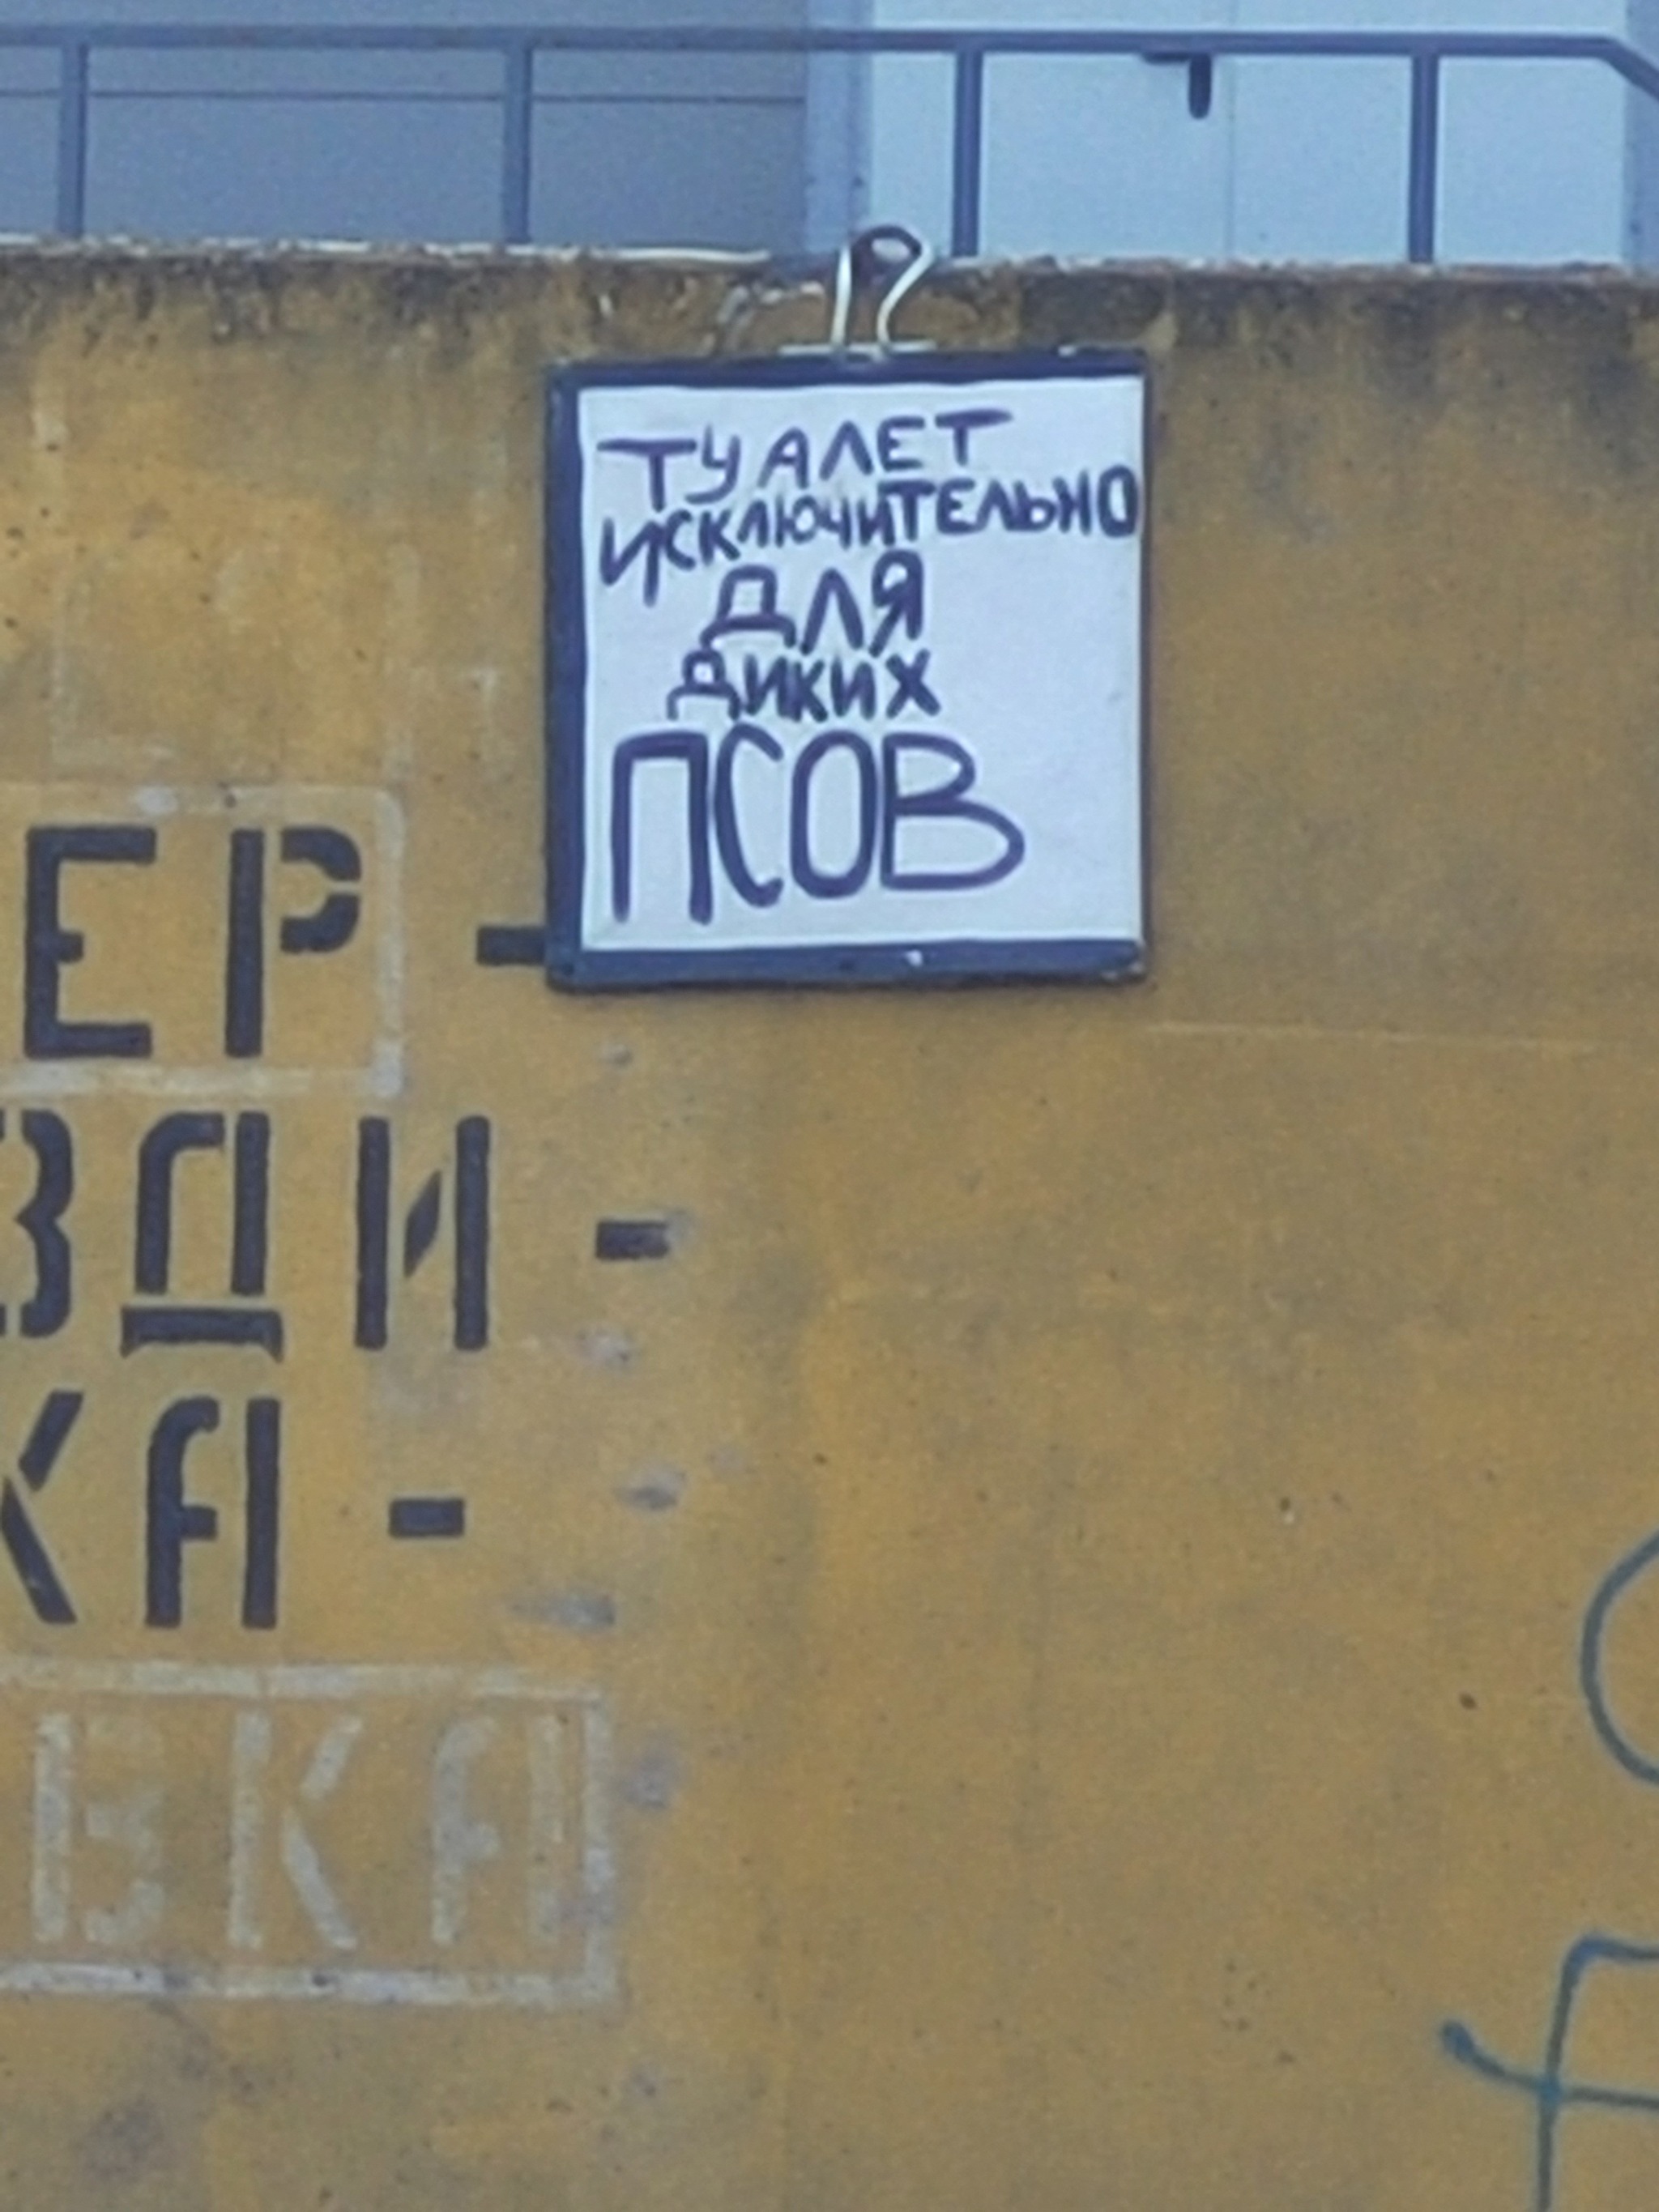 ТУАЛЕТ
ИСКЛЮЧИТЕЛЬНО
ДЛЯ
ДИКИХ
ПСОВ
ЕР -
ЗДИ -
КА -
ВКА